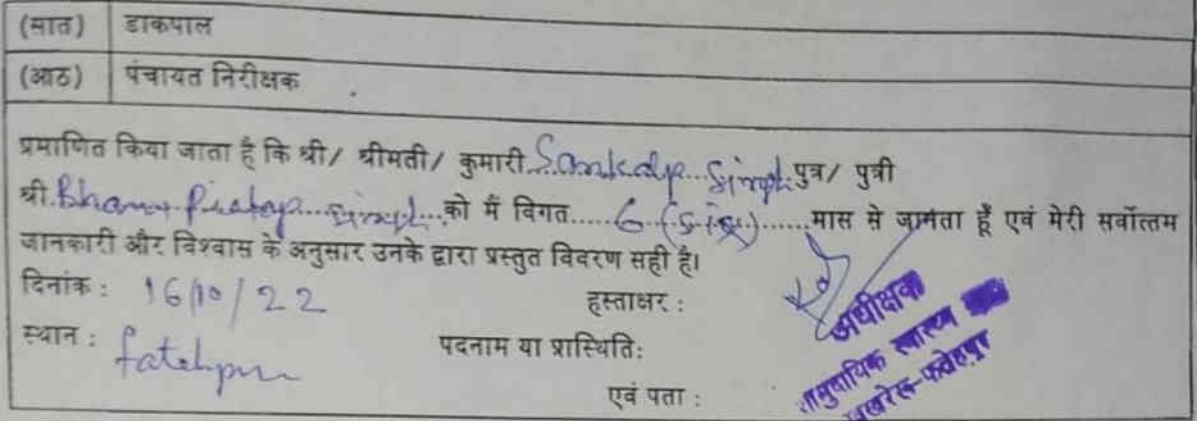 (सात) डाकपाल
(आठ) पंचायत निरीक्षक
प्रमाणित किया जाता है कि श्री/ श्रीमती/ कुमारी Sankalp Singh पुत्र/ पुत्री
श्री. Bhanu Pratap Singh को मैं विगत...... 6 (Six) ......मास से जानता हूँ एवं मेरी सर्वोत्तम
जानकारी और विश्वास के अनुसार उनके द्वारा प्रस्तुत विवरण सही है।
दिनांक : 16/10/22 हस्ताक्षर :
अधीक्षक
स्थान : fatehpur पदनाम या प्रास्थिति:
सामुदायिक स्वास्थ्य
एवं पता :
फतेहपुर